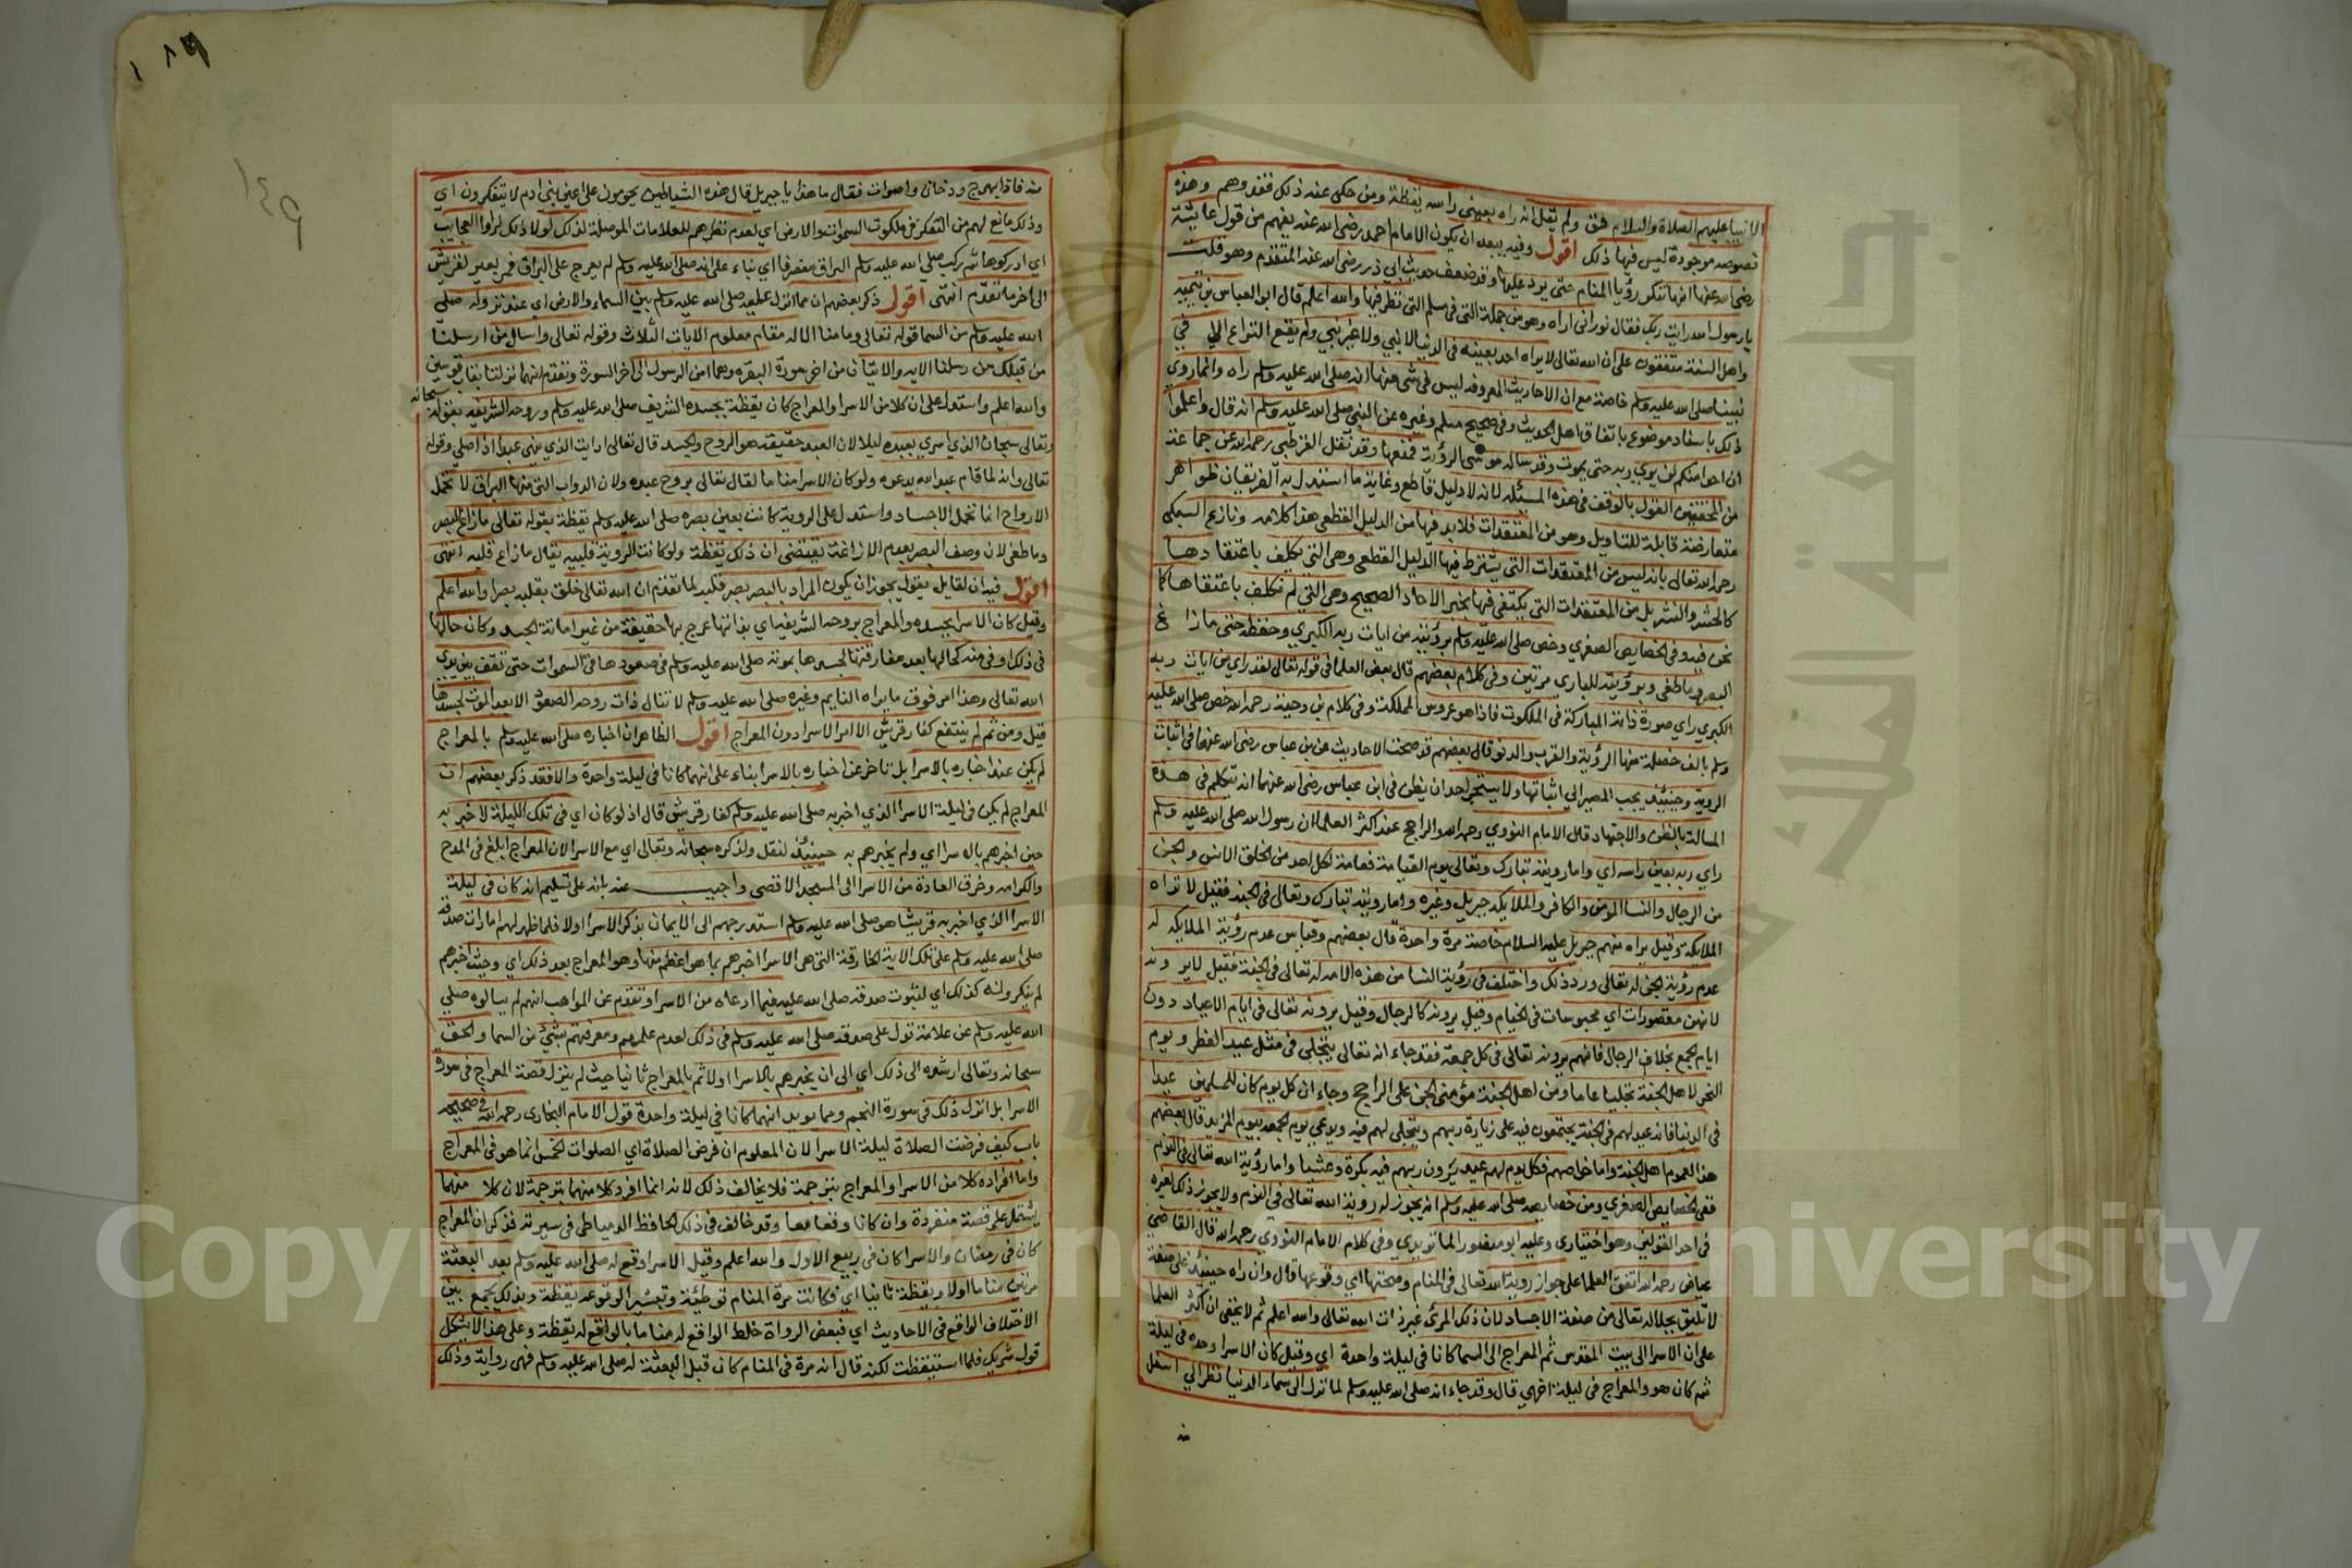 الانبيا عليهم الصلاة والسلام حق ولم يقل انه راه بعيني راسه يقظة ومن حكى عنه ذلك فقد وهم وهذه
نصوصه موجودة ليس فيها ذلك اقول وفيه يبعد ان يكون الامام احمد رضي الله عنه يفهم من قول عايشة
رضي الله عنها انها تنكر رؤيا المنام حتى يرد عليها وقد ضعف حديث ابي ذر رضي الله عنه المتقدم وهو قلت
يا رسول الله رايت ربك فقال نوراني اراه وهو من جملة التي في مسلم التي نظر فيها والله اعلم قال ابو العباس بن تيمية
واهل السنة متفقون على ان الله تعالى لا يراه احد بعينه في الدنيا لا نبي ولا غير نبي ولم يقع النزاع الا في
نبينا صلى الله عليه وسلم خاصة مع ان الاحاديث المعروفة ليس في شي منها انه صلى الله عليه وسلم راه وانما روي
ذلك باسناد موضوع باتفاق اهل الحديث وفي صحيح مسلم وغيره عن النبي صلى الله عليه وسلم انه قال واعلموا
ان احدا منكم لن يرى ربه حتى يموت وقد ساله موسى الرؤية فمنعها وقد نقل القرطبي رحمه الله عن جماعة
من المحققين القول بالوقف في هذه المسئلة لانه لا دليل قاطع وغاية ما استدل به الفريقان ظواهر
متعارضة قابلة للتاويل وهو من المعتقدات فلا بد فيها من الدليل القطعي هذا كلامه ونازع السبكي
رحمه الله تعالى بانه ليس من المعتقدات التي يشترط فيها الدليل القطعي وهي التي يكلف باعتقادها
كالحشر والنشر بل من المعتقدات التي يكتفى فيها بخبر الاحاد الصحيح وهي التي لم نكلف باعتقادها كما
نحن فيه وفي الخصايص الصغرى وخص صلى الله عليه وسلم برؤيته من ايات ربه الكبرى وحفظه حتى ما زاغ
البصر وما طغى وبرؤيته للبارى مرتين وفي كلام بعضهم قال بعض العلما في قوله تعالى لقد راى من ايات ربه
الكبرى راى صورة ذاته المباركة في الملكوت فاذا هو عروس المملكة وفي كلام بن دحية رحمه الله خص صلى الله عليه
وسلم بالف خصلة منها الرؤية والقرب والدنو قال بعضهم قد صحت الاحاديث عن بن عباس رضي الله عنهما في اثبات
الروية وحينئذ يجب المصير الى اثباتها ولا يستجيز احد ان يظن في ابن عباس رضي الله عنهما انه يتكلم في هذه
المسالة بالظن والاجتهاد قال الامام النووي رحمه الله والراجح عند اكثر العلما ان رسول الله صلى الله عليه وسلم
راى ربه بعين راسه اي واما رويته تبارك وتعالى يوم القيامة فعامة لكل احد من الخلق الانس والجن
من الرجال والنسا المومن والكافر والملايكة جبريل وغيره واما رويته تبارك وتعالى في الجنة فقيل لا تراه
الملايكة وقيل يراه منهم جبريل عليه السلام خاصة مرة واحدة قال بعضهم وقياس عدم رؤية الملايكة له
عدم رؤية الجن له تعالى ورد ذلك واختلف في رؤية النسا من هذه الامة له تعالى في الجنة فقيل لا يرونه
لانهن مقصورات اي محبوسات في الخيام وقيل يرونه كالرجال وقيل يرونه تعالى في ايام الاعياد دون
ايام الجمع بخلاف الرجال فانهم يرونه تعالى في كل جمعة فقد جاء انه تعالى يتجلى في مثل عيد الفطر ويوم
النحر لاهل الجنة تجليا عاما ومن اهل الجنة مؤمني الجن على الراجح وجاء ان كل يوم كان للمسلمين عيدا
في الدنيا فانه عيد لهم في الجنة يجتمعون فيه على زيارة ربهم ويتجلى لهم فيه ويدعى يوم الجمعة بيوم المزيد قال بعضهم
هذا لعموم اهل الجنة واما خواصهم فكل يوم لهم عيد يزرون ربهم فيه بكرة وعشيا واما رؤية الله تعالى في النوم
ففي الخصايص الصغرى ومن خصايصه صلى الله عليه وسلم انه يجوز له روية الله تعالى في النوم ولا يجوز ذلك لغيره
في احد القولين وهو اختياري وعليه ابو منصور الماتريدي وفي كلام الامام النووي رحمه الله قال القاضي
عياض رحمه الله اتفق العلما على جواز روية الله تعالى في المنام وصحتها اي وقوعها قال وان راه حينئذ على صفة
لا تليق بجلاله تعالى من صفة الاجساد لان ذلك المرئ غير ذات الله تعالى والله اعلم ثم لا يخفى ان اكثر العلما
على ان الاسرا الى بيت المقدس ثم المعراج الى السما كانا في ليلة واحدة اي وقيل كان الاسرا وحده في ليلة
ثم كان هو والمعراج في ليلة اخرى قال وقد جاء انه صلى الله عليه وسلم لما نزل الى سماء الدنيا نظر الى اسفل
منه فاذا بهرج ودخان واصوات فقال ما هذا يا جبريل قال هذه الشياطين يحومون على اعين بني ادم لا يتفكرون اي
وذلك مانع لهم من التفكر في ملكوت السموات والارض اي لعدم نظرهم للعلامات الموصلة لذلك لولا ذلك لراوا العجايب
اي ادركوها ثم ركب صلى الله عليه وسلم البراق منصرفا اي بناء على انه صلى الله عليه وسلم لم يعرج على البراق فمر بعير لقريش
الى اخر ما تقدم انتهى اقول ذكر بعضهم ان مما انزل عليه صلى الله عليه وسلم بين السماء والارض اي عند نزوله صلى
الله عليه وسلم من السما قوله تعالى وما منا الا له مقام معلوم الايات الثلاث وقوله تعالى واسال من ارسلنا
من قبلك من رسلنا الاية والايتان من اخر سورة البقرة وهما امن الرسول الى اخر السورة وتقدم انهما نزلتا بقاب قوسين
والله اعلم واستدل على ان كلا من الاسرا والمعراج كان يقظة بجسده الشريف صلى الله عليه وسلم وروحه الشريفه بقوله سبحانه
وتعالى سبحان الذي اسرى بعبده ليلا لان العبد حقيقة هو الروح والجسد قال تعالى ارايت الذي ينهى عبدا اذا صلى وقوله
تعالى وانه لما قام عبد الله يدعوه ولو كان الاسرا مناما لقال تعالى بروح عبده ولان الدواب التي منها البراق لا تحمل
الارواح انما تحمل الاجساد واستدل على الروية كانت بعين بصره صلى الله عليه وسلم يقظة بقوله تعالى ما زاغ البصر
وما طغى لان وصف البصر بعدم الازاغة يقتضي ان ذلك يقظة ولو كانت الروية قلبيه لقال ما زاغ قلبه انتهى
اقول فيه ان لقايل يقول يجوز ان يكون المراد بالبصر بصر قلبه لما تقدم ان الله تعالى خلق بقلبه بصرا والله اعلم
وقيل كان الاسرا بجسده والمعراج بروحه الشريفة اي بذاتها عرج بها حقيقة من غير اماتة الجسد وكان حالها
في ذلك اوفى منه كحالها بعد مفارقتها لجسدها بموته صلى الله عليه وسلم في صعودها في السموات حتى تقف بين يدي
الله تعالى وهذا امر فوق ما يراه النايم وغيره صلى الله عليه وسلم لا تنال ذات روحه الصعود الا بعد الموت لجسدها
قيل ومن ثم لم يتشنع كفار قريش الا امر الاسرا دون المعراج اقول الظاهر ان اخباره صلى الله عليه وسلم بالمعراج
لم يكن عند اخباره بالاسرا بل تاخر عن اخباره بالاسرا بناء على انهما كانا في ليلة واحدة والا فقد ذكر بعضهم ان
المعراج لم يكن في ليلة الاسرا الذي اخبر به صلى الله عليه وسلم كفار قريش قال اذ لو كان اي في تلك الليلة لاخبر به
حين اخبرهم بالاسرا اي ولم يخبرهم به حينئذ لنقل ولذكره سبحانه وتعالى اي مع الاسرا لان المعراج ابلغ في المدح
والكرامه وخرق العادة من الاسرا الى المسجد الاقصى واجيب عنه بانه على تسليم انه كان في ليلة
الاسرا الذي اخبر به قريشا هو صلى الله عليه وسلم استدرجهم الى الايمان بذكر الاسرا اولا فلما ظهر لهم امارات صدقه
صلى الله عليه وسلم على تلك الاية الخارقة التي هي الاسرا اخبرهم بما هو اعظم منها وهو المعراج بعد ذلك اي وحيث اخبرهم
لم ينكروا له كذلك اي لثبوت صدقه صلى الله عليه فيما ادعاه من الاسرا وتقدم عن المواهب انهم لم يسالوه صلى
الله عليه وسلم عن علامة تدل على صدقه صلى الله عليه وسلم في ذلك لعدم علمهم ومعرفتهم بشئ من السما والحق
سبحانه وتعالى ارشده الى ذلك اي الى ان يخبرهم بالاسرا اولا ثم بالمعراج ثانيا حيث لم ينزل قصة المعراج في سورة
الاسرا بل انزل ذلك في سورة النجم ومما يويد انهما كانا في ليلة واحدة قول الامام البخاري رحمه الله في صحيحه
باب كيف فرضت الصلاة ليلة الاسرا لان المعلوم ان فرض الصلاة اي الصلوات الخمس انما هو في المعراج
واما افراده كلا من الاسرا والمعراج بترجمة فلا يخالف ذلك لانه انما افرد كلا منهما بترجمة لان كلا منهما
يشتمل على قصة منفردة وان كانا وقعا معا وقد خالف في ذلك الحافظ الدمياطي في سيرته فذكر ان المعراج
كان في رمضان والاسرا كان في ربيع الاول والله اعلم وقيل الاسرا وقع له صلى الله عليه وسلم بعد البعثة
مرتين مناما اولا ويقظة ثانيا اي فكانت مرة المنام توطئة وتبشيرا لوقوعه يقظة وبذلك يجمع بين
الاختلاف الواقع في الاحاديث اي فبعض الرواة خلط الواقع له مناما بالواقع له يقظة وعلى هذا لا يشكل
قول شريك فلما استيقظت لكنه قال انه مرة في المنام كان قبل البعثة له صلى الله عليه وسلم فهى رواية وذلك
١٨٩
١٤٩
جامعة الملك سعود
Copyright © King Saud University